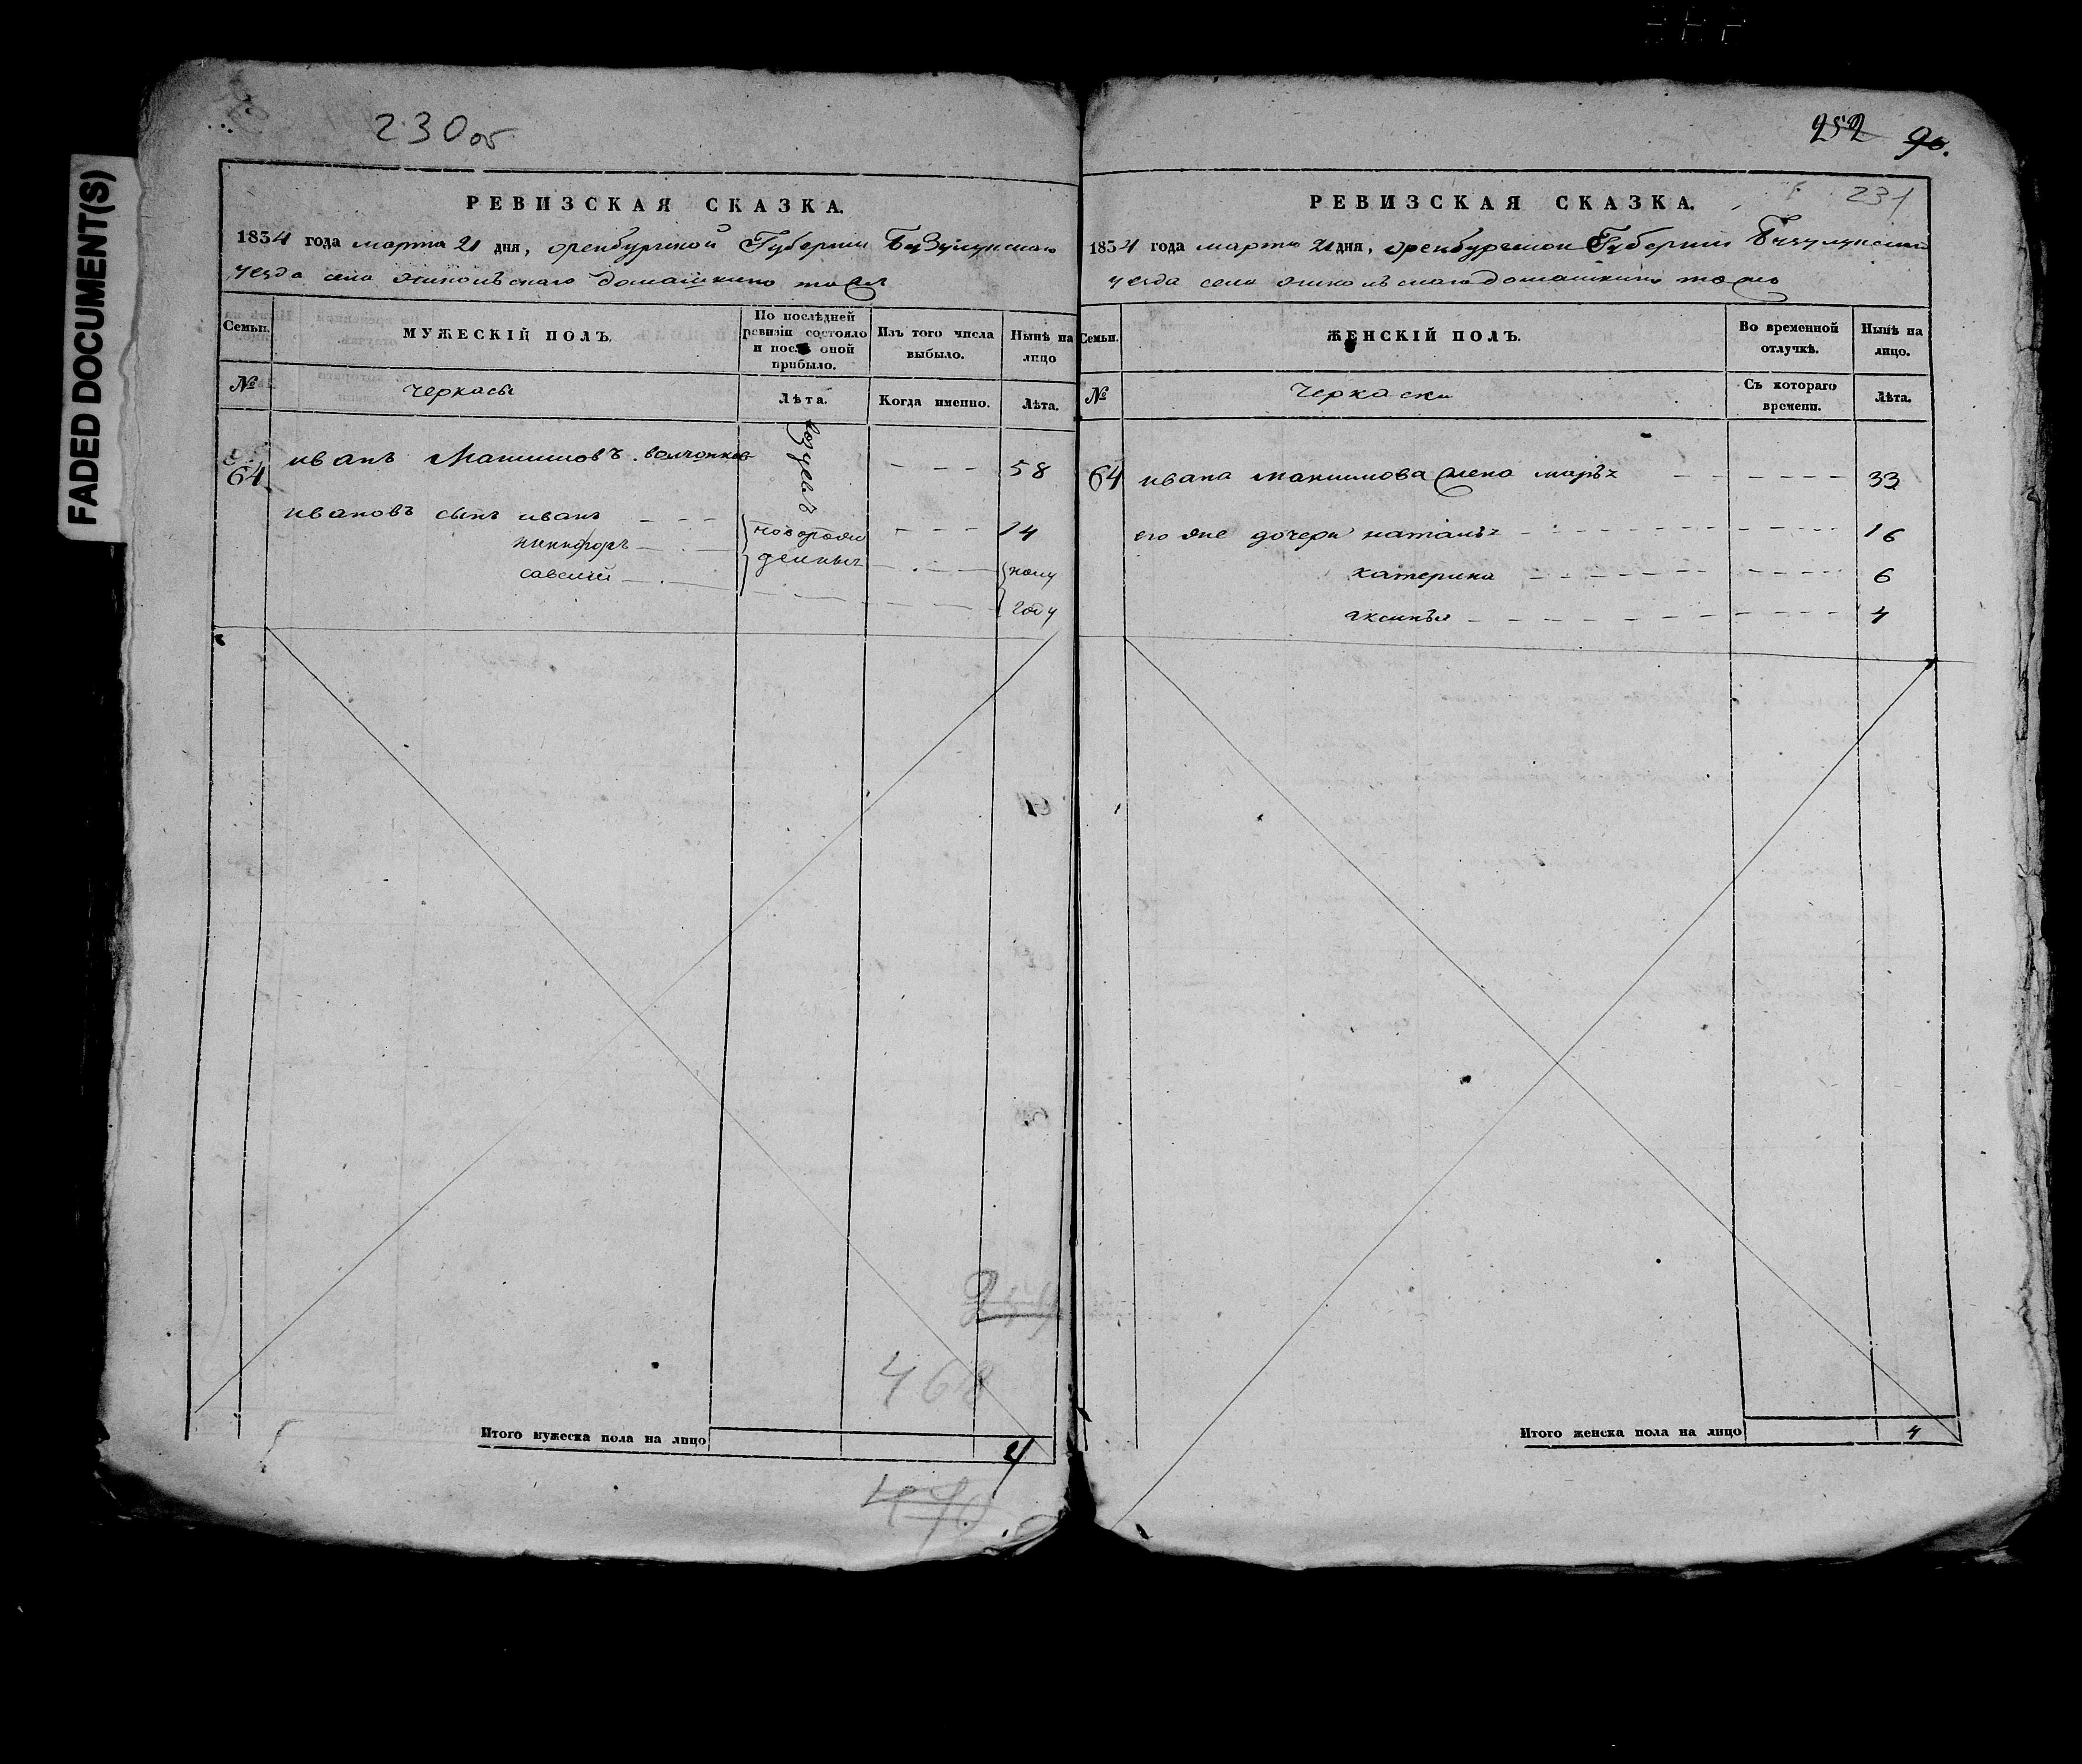 FADED DOCUMENT(S)
230 об
РЕВИЗСКАЯ СКАЗКА.
1834 года марта 21 дня, оренбургской Губернии Бузулунскаго
уезда села домашкино тож
Семьи.
МУЖЕСКІЙ ПОЛЪ.
По послѣдней ревизіи состояло и послѣ оной прибыло.
Изъ того числа выбыло.
Нынѣ на лицо
№
черкасы
Лѣта.
Когда именно.
Лѣта.
64 иванъ Макимовъ волчонков 58
ивановъ сынъ иванъ 14
никифоръ
савелий
новорожденныя
полугоду
468
470
Итого мужеска пола на лицо 4
252 90.
231
РЕВИЗСКАЯ СКАЗКА.
1834 года марта 21 дня, оренбургской Губернии Бузулунскаго
уезда села домашкино тож
Семьи.
ЖЕНСКІЙ ПОЛЪ.
Во временной отлучкѣ.
Нынѣ на лицо.
№
Черкаски
Съ котораго времени.
Лѣта.
64 ивана макимова олена 33
его же дочери наталья 16
катерина 6
аксинья 4
Итого женска пола на лицо 4